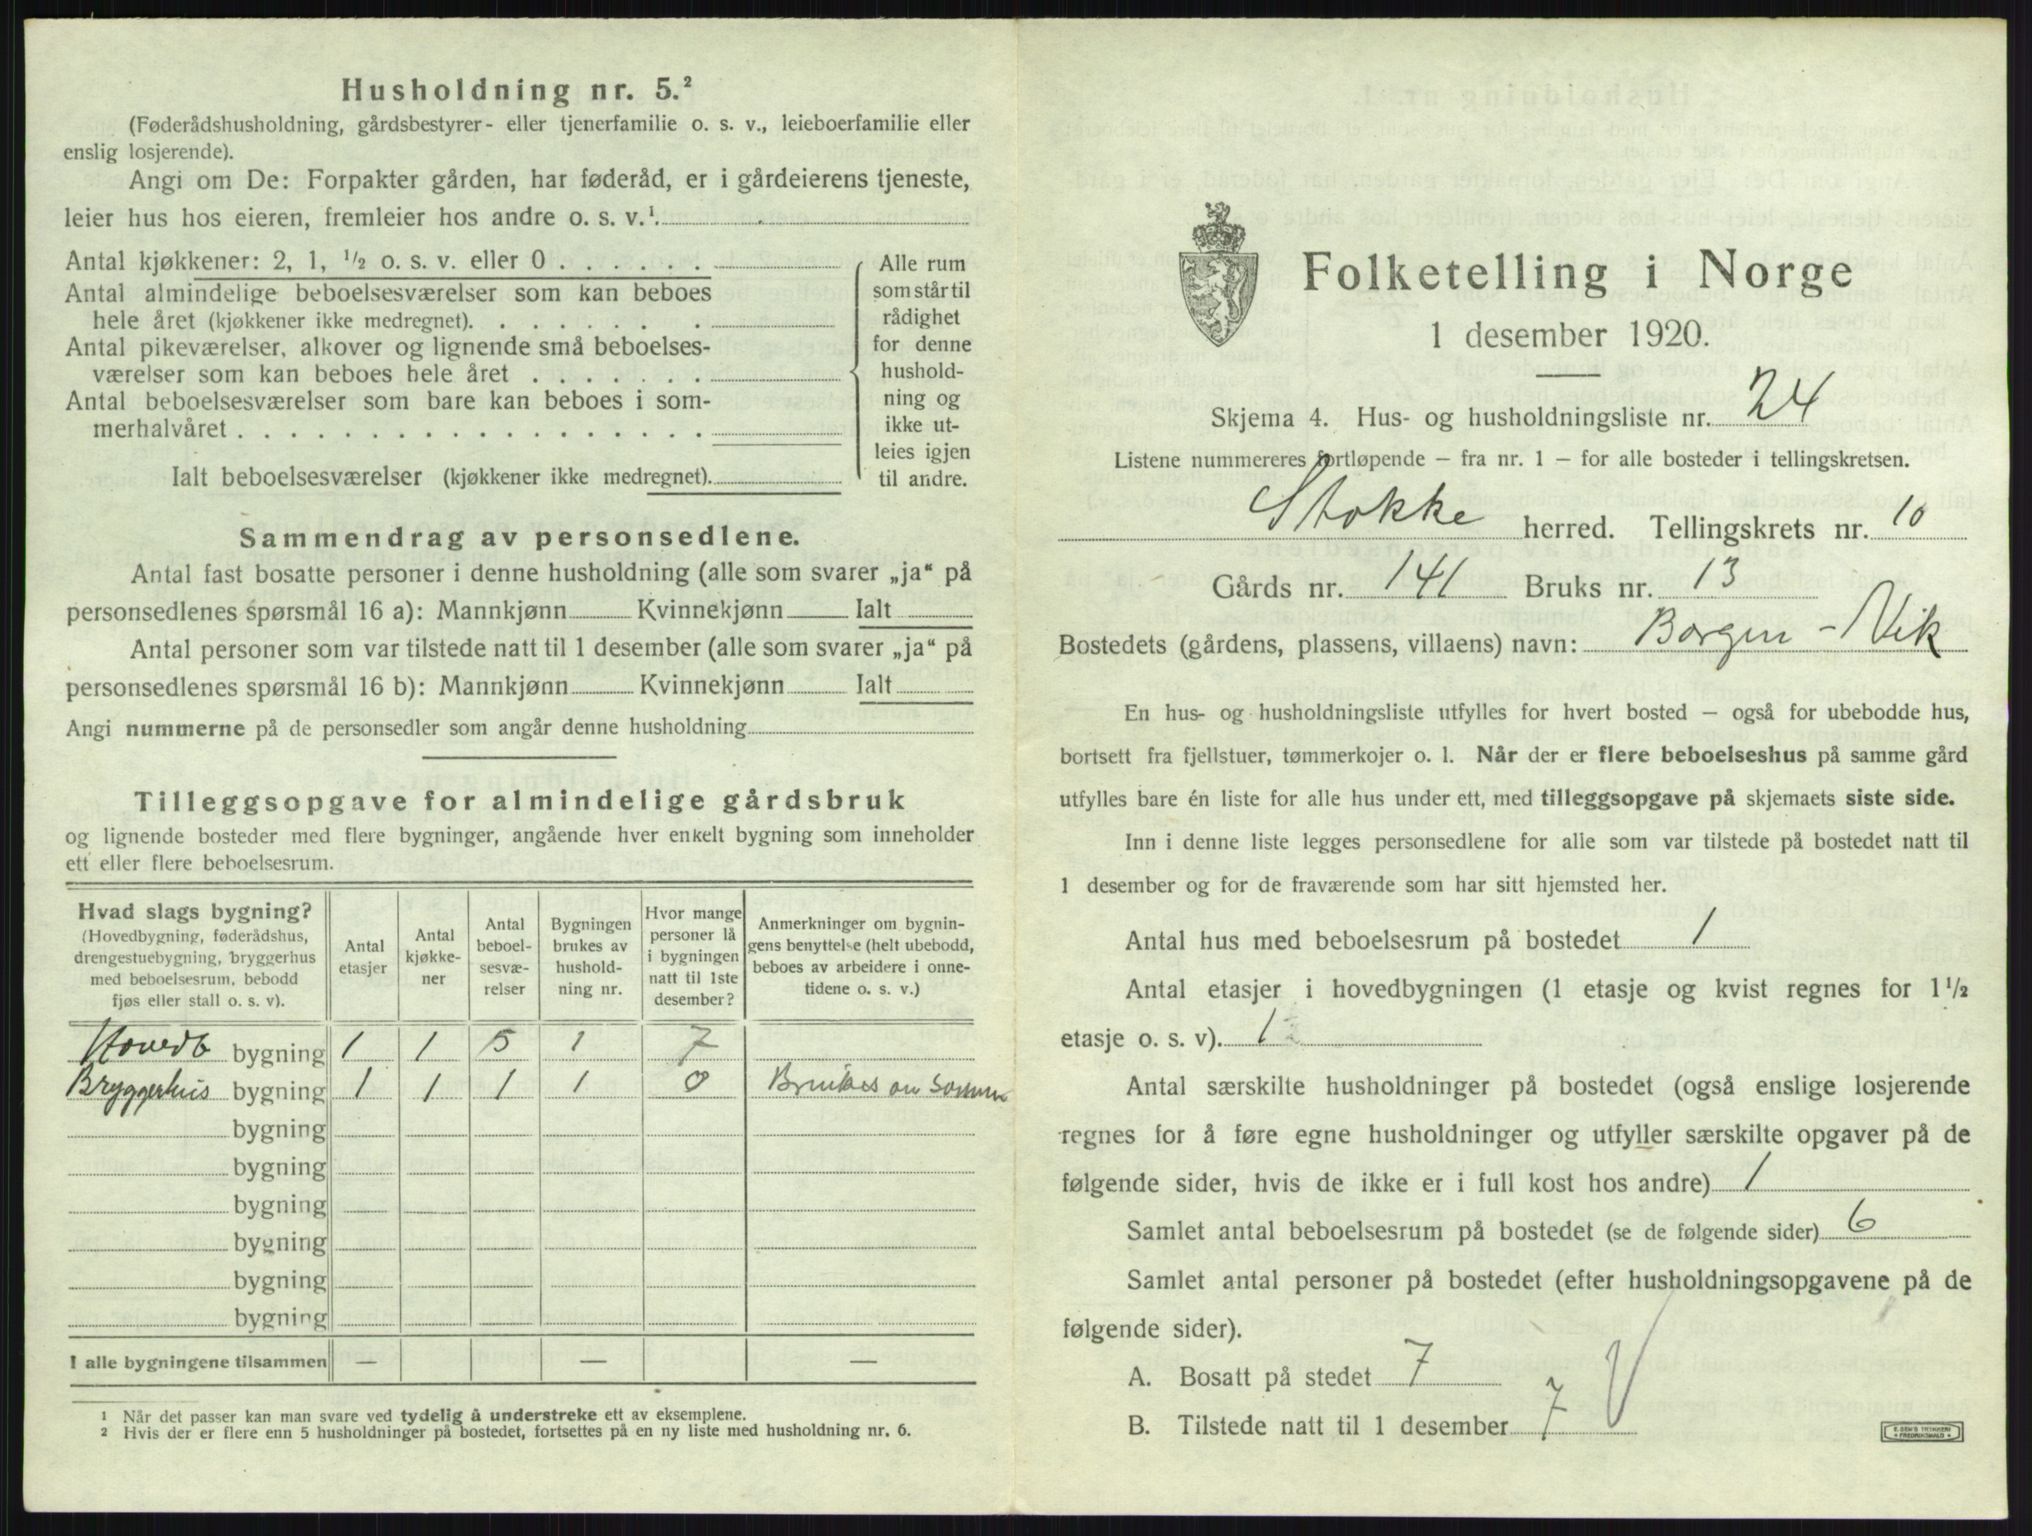 Husholdning nr. 5.²
(Føderådshusholdning, gårdsbestyrer- eller tjenerfamilie o. s. v., leieboerfamilie eller
enslig losjerende).
Angi om De: Forpakter gården, har føderåd, er i gårdeierens tjeneste,
leier hus hos eieren, fremleier hos andre o. s. v.¹
Antal kjøkkener: 2, 1, ½ o. s. v. eller 0 . . . . . .
Antal almindelige beboelsesværelser som kan beboes
hele året (kjøkkener ikke medregnet). . . . . . . .
Antal pikeværelser, alkover og lignende små beboelses-
værelser som kan beboes hele året . . . . . . .
Antal beboelsesværelser som bare kan beboes i som-
merhalvåret . . . . . . . . . . . . . . . . . .
Ialt beboelsesværelser (kjøkkener ikke medregnet).
Alle rum
som står til
rådighet
for denne
hushold-
ning og
ikke ut-
leies igjen
til andre.
Sammendrag av personsedlene.
Antal fast bosatte personer i denne husholdning (alle som svarer „ja“ på
personsedlenes spørsmål 16 a): Mannkjønn Kvinnekjønn Ialt
Antal personer som var tilstede natt til 1 desember (alle som svarer „ja“ på
personsedlenes spørsmål 16 b): Mannkjønn Kvinnekjønn Ialt
Angi nummerne på de personsedler som angår denne husholdning
Tilleggsopgave for almindelige gårdsbruk
og lignende bosteder med flere bygninger, angående hver enkelt bygning som inneholder
ett eller flere beboelsesrum.
Hvad slags bygning?
(Hovedbygning, føderådshus,
drengestuebygning, bryggerhus
med beboelsesrum, bebodd
fjøs eller stall o. s. v).
Antal
etasjer
Antal
kjøkke-
ner
Antal
beboel-
sesvæ-
relser
Bygningen
brukes av
hushold-
ning nr.
Hvor mange
personer lå
i bygningen
natt til 1ste
desember?
Anmerkninger om bygnin-
gens benyttelse (helt ubebodd,
beboes av arbeidere i onne-
tidene o. s. v.)
Hovedb bygning 1 1 5 1 7
Bryggerhus bygning 1 1 1 1 0 Brukes om Sommer
bygning
bygning
bygning
bygning
bygning
bygning
I alle bygningene tilsammen — — —
¹ Når det passer kan man svare ved tydelig å understreke ett av eksemplene.
² Hvis der er flere enn 5 husholdninger på bostedet, fortsettes på en ny liste med husholdning nr. 6.
Folketelling i Norge
1 desember 1920.
Skjema 4. Hus- og husholdningsliste nr. 24
Listene nummereres fortløpende – fra nr. 1 – for alle bosteder i tellingskretsen.
Stokke herred. Tellingskrets nr. 10
Gårds nr. 141 Bruks nr. 13
Bostedets (gårdens, plassens, villaens) navn: Borgen - Vik
En hus- og husholdningsliste utfylles for hvert bosted – også for ubebodde hus,
bortsett fra fjellstuer, tømmerkojer o. l. Når der er flere beboelseshus på samme gård
utfylles bare én liste for alle hus under ett, med tilleggsopgave på skjemaets siste side.
Inn i denne liste legges personsedlene for alle som var tilstede på bostedet natt til
1 desember og for de fraværende som har sitt hjemsted her.
Antal hus med beboelsesrum på bostedet 1
Antal etasjer i hovedbygningen (1 etasje og kvist regnes for 1½
etasje o. s. v). 1
Antal særskilte husholdninger på bostedet (også enslige losjerende
regnes for å føre egne husholdninger og utfyller særskilte opgaver på de
følgende sider, hvis de ikke er i full kost hos andre) 1
Samlet antal beboelsesrum på bostedet (se de følgende sider) 6
Samlet antal personer på bostedet (efter husholdningsopgavene på de
følgende sider).
A. Bosatt på stedet 7
B. Tilstede natt til 1 desember 7 V